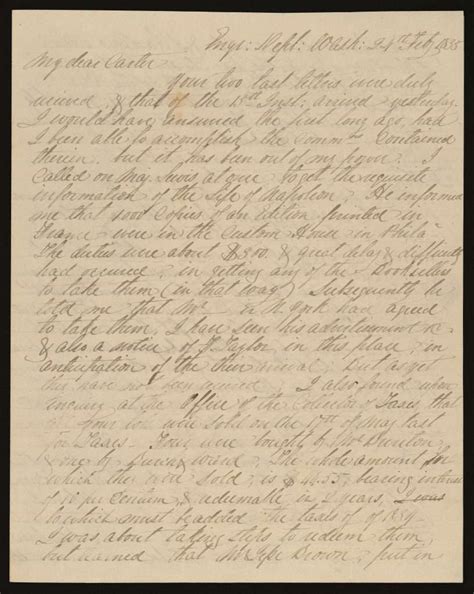 Engr: Dept: Wash: 24th Feb. 1835
My dear Carter
Your two last letters were duly
received, & that of the 15th Inst: arrived yesterday.
I would have answered the first long ago, had
I been able to accomplish the Commn. Contained
therein. but it has been out of my power. I
Called on Maj. at once to get the requisite
information of the Life of Napoleon. He informed
me that 1000 Copies of an Edition printed in
France were in the Custom House in Phila
The duties were about $800. & great delay & difficulty
had occurred, in getting any of the Booksellers
to take them (in that way) Subsequently he
told me that Mr. N. York had agreed
to take them. I have seen his advertisement &c
& also a notice of F. Taylor in this place, in
anticipation of the their arrival. But as yet
they have not been received. I also found upon
enquiring at the Office of the Collector of Taxes, that
your were Sold on the 17th of May last
for Taxes. Four were bought by
& one by Brown. The whole amount for
which the were Sold, is $44.55, bearing interest
of 10 per Centum & redeemable in 2 years,
to which must be added the taxes of 1834.
I was about taking Steps to redeem them,
but learned that Brown, put in